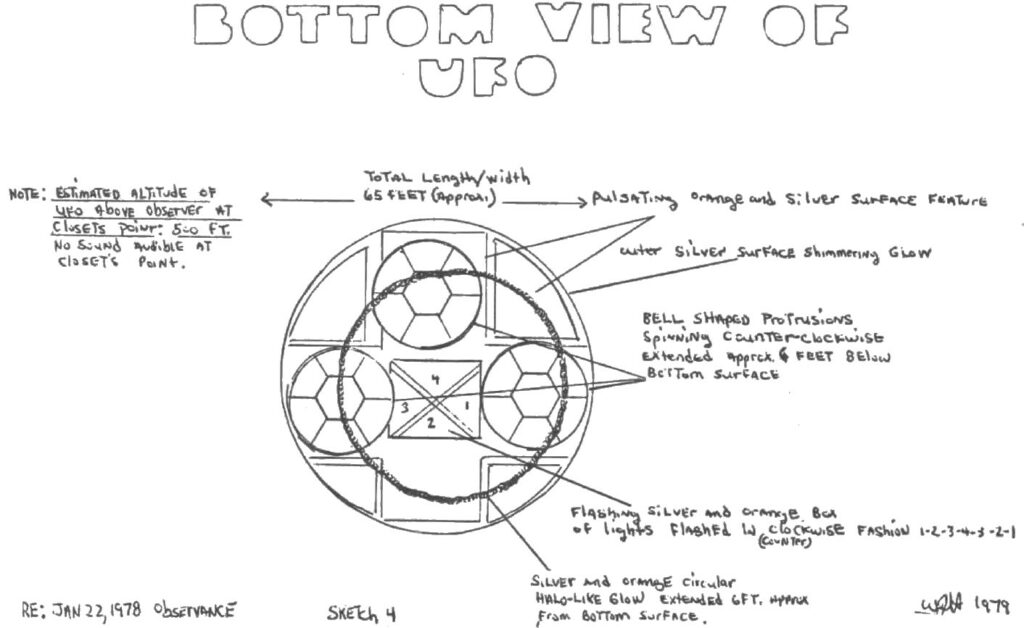 BOTTOM VIEW OF
UFO
NOTE: ESTIMATED ALTITUDE OF
UFO ABOVE OBSERVER AT
CLOSETS POINT: 500 FT.
NO SOUND AUDIBLE AT
CLOSET'S POINT.
TOTAL LENGTH/WIDTH
65 FEET (APPROX.)
PULSATING ORANGE AND SILVER SURFACE FEATURE
OUTER SILVER SURFACE SHIMMERING GLOW
BELL SHAPED PROTRUSIONS
SPINNING COUNTER-CLOCKWISE
EXTENDED APPROX. 6 FEET BELOW
BOTTOM SURFACE
4
3 1
2
FLASHING SILVER AND ORANGE BOX
OF LIGHTS FLASHED IN CLOCKWISE FASHION 1-2-3-4-3-2-1
(COUNTER)
SILVER AND ORANGE CIRCULAR
HALO-LIKE GLOW EXTENDED 6FT. APPROX
FROM BOTTOM SURFACE.
RE: JAN 22, 1978 OBSERVANCE
SKETCH 4
1979